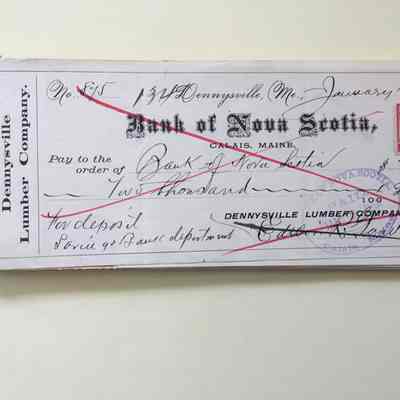 Dennysville
Lumber Company.
No. 815 Dennysville, Me., January
Bank of Nova Scotia,
CALAIS, MAINE.
Pay to the
order of Bank of Nova Scotia $
Two thousand
100
DENNYSVILLE LUMBER COMPANY
For deposit
Savings Bank department